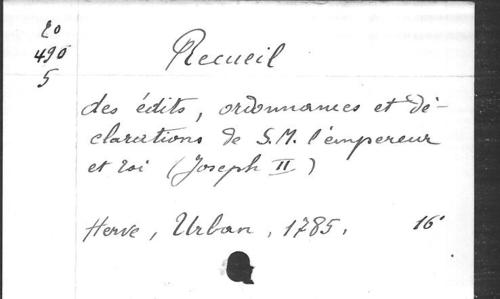 20
490
5
Recueil
des édits, ordonnances et dé-
clarations de S.M. l'émpereur
et roi (Joseph II)
Herve, Urban, 1785. 16°